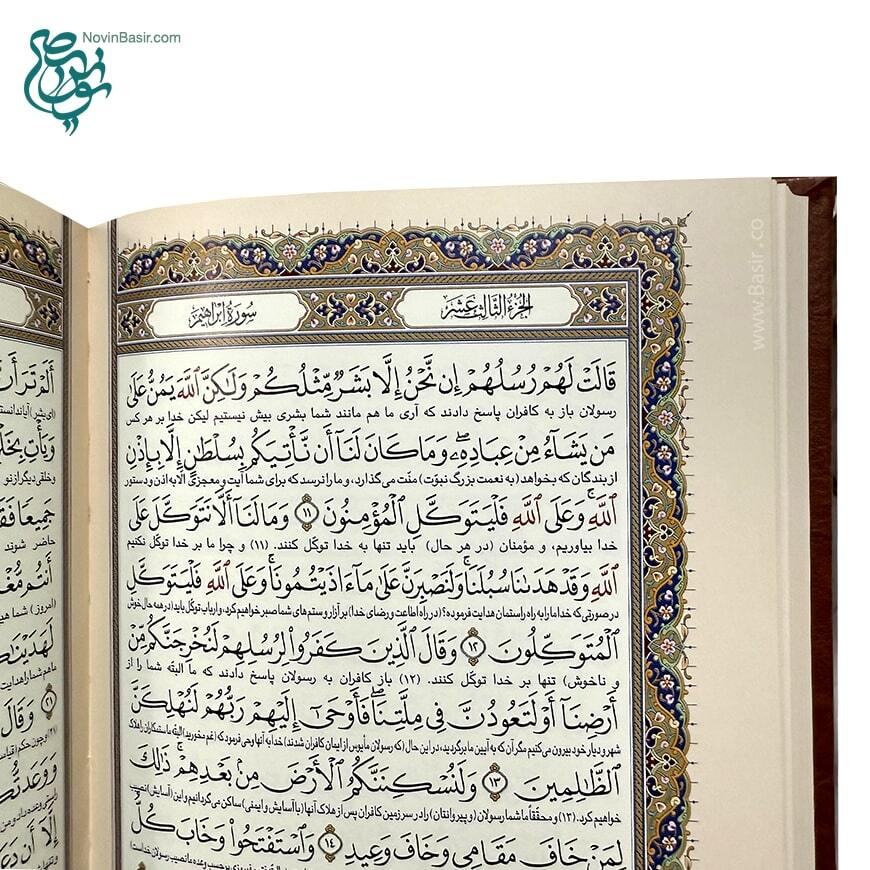 NovinBasir.com
www.Basir.co
الجزء الثالث عشر
سورة ابراهیم
قَالَتْ لَهُمْ رُسُلُهُمْ إِن نَّحْنُ إِلَّا بَشَرٌ مِّثْلُكُمْ وَلَٰكِنَّ ٱللَّهَ يَمُنُّ عَلَىٰ
رسولان باز به کافران پاسخ دادند که آری ما هم مانند شما بشری بیش نیستیم لیکن خدا بر هر کس
مَن يَشَآءُ مِنْ عِبَادِهِۦ وَمَا كَانَ لَنَآ أَن نَّأْتِيَكُم بِسُلْطَٰنٍ إِلَّا بِإِذْنِ
از بندگان که بخواهد (به نعمت بزرگ نبوّت) منّت می‌گذارد، و ما را نرسد که برای شما آیت و معجزی الا به اذن و دستور
ٱللَّهِ ۚ وَعَلَى ٱللَّهِ فَلْيَتَوَكَّلِ ٱلْمُؤْمِنُونَ ١١ وَمَا لَنَآ أَلَّا نَتَوَكَّلَ عَلَى
خدا بیاوریم، و مؤمنان (در هر حال) باید تنها به خدا توکّل کنند. (۱۱) و چرا ما بر خدا توکّل نکنیم
ٱللَّهِ وَقَدْ هَدَىٰنَا سُبُلَنَا ۚ وَلَنَصْبِرَنَّ عَلَىٰ مَآ ءَاذَيْتُمُونَا ۚ وَعَلَى ٱللَّهِ فَلْيَتَوَكَّلِ
در صورتی که خدا ما را به راه راستمان هدایت فرموده؟ (در راه اطاعت و رضای خدا) بر آزار و ستم‌های شما صبر خواهیم کرد، و ارباب توکّل باید (در همه حال خوش
ٱلْمُتَوَكِّلُونَ ١٢ وَقَالَ ٱلَّذِينَ كَفَرُواْ لِرُسُلِهِمْ لَنُخْرِجَنَّكُم مِّنْ
و ناخوش) تنها بر خدا توکّل کنند. (۱۲) باز کافران به رسولان پاسخ دادند که ما البتّه شما را از
أَرْضِنَآ أَوْ لَتَعُودُنَّ فِي مِلَّتِنَا ۖ فَأَوْحَىٰٓ إِلَيْهِمْ رَبُّهُمْ لَنُهْلِكَنَّ
شهر و دیار خود بیرون می‌کنیم مگر آن که به آیین ما برگردید، در این حال (که رسولان مأیوس از ایمان کافران شدند) خدا به آنها وحی فرمود که (غم مخورید) البتّه ما ستمکاران را هلاک
ٱلظَّٰلِمِينَ ١٣ وَلَنُسْكِنَنَّكُمُ ٱلْأَرْضَ مِنۢ بَعْدِهِمْ ۚ ذَٰلِكَ
خواهیم کرد. (۱۳) و محقّقاً ما شما رسولان (و پیروانتان) را در سرزمین کافران پس از هلاک آنها (با آسایش و ایمنی) ساکن می‌گردانیم و این (آسایش) نصیب
لِمَنْ خَافَ مَقَامِي وَخَافَ وَعِيدِ ١٤ وَٱسْتَفْتَحُواْ وَخَابَ كُلُّ
أَلَمْ تَرَ أَنَّ
وَيَأْتِ بِخَلْقٍ
و خلقی دیگر از نو
جَمِيعًا فَقَالَ
حاضر شوند
أَنتُم مُّغْنُونَ
لَهَدَيْنَٰكُمْ
ما هم شما را هدایت
٢١ وَقَالَ
وَوَعَدتُّكُمْ
إِلَّآ أَن دَعَوْتُكُمْ